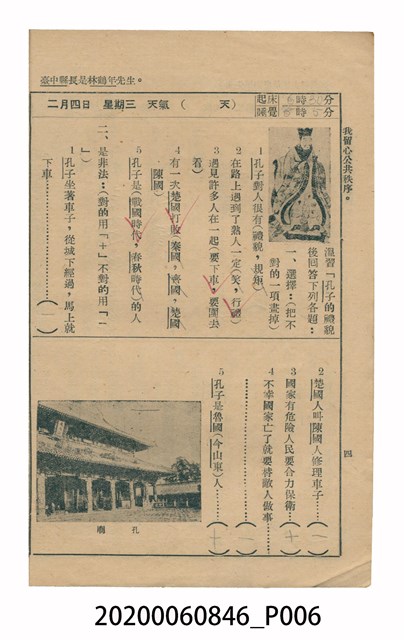 臺中縣長是林鶴年先生。
二月四日 星期三 天氣( 天) 起床 6時30分 睡覺 8時5分
我留心公共秩序。
溫習「孔子的禮貌
後回答下列各題:
一、選擇:(把不
對的一項畫掉)
1 孔子對人很有(禮貌,規矩)
2 在路上遇到了熟人一定(笑,行禮)
3 遇見許多人在一起(要下車,要圍去
看)
4 有一次楚國打敗(秦國,晉國,楚國
陳國)
5 孔子是(戰國時代,春秋時代)的人
二、是非法:(對的用「+」不對的用「一
」)
1 孔子坐著車子,從城下經過,馬上就
下車………………(一)
四
2 楚國人叫陳國人修理車子……(一)
3 國家有危險人民要合力保衛……(十)
4 不幸國家亡了就要替敵人做事
………………(一)
5 孔子是魯國(今山東)人……(十)
孔廟
20200060846_P006